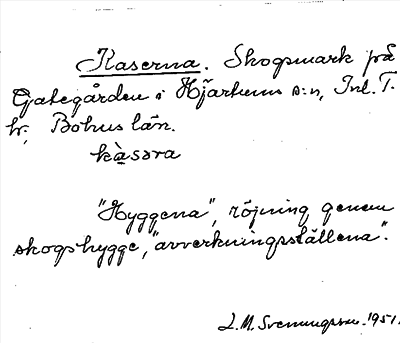 Kaserna. Skogsmark på
Gategården i Hjärtums s:n, Inl. T.
hr, Bohus län.
kàsəra
"Hyggena", röjning genom
skogshygge, "avverkningsställena".
L.M. Svenungsson. 1951.